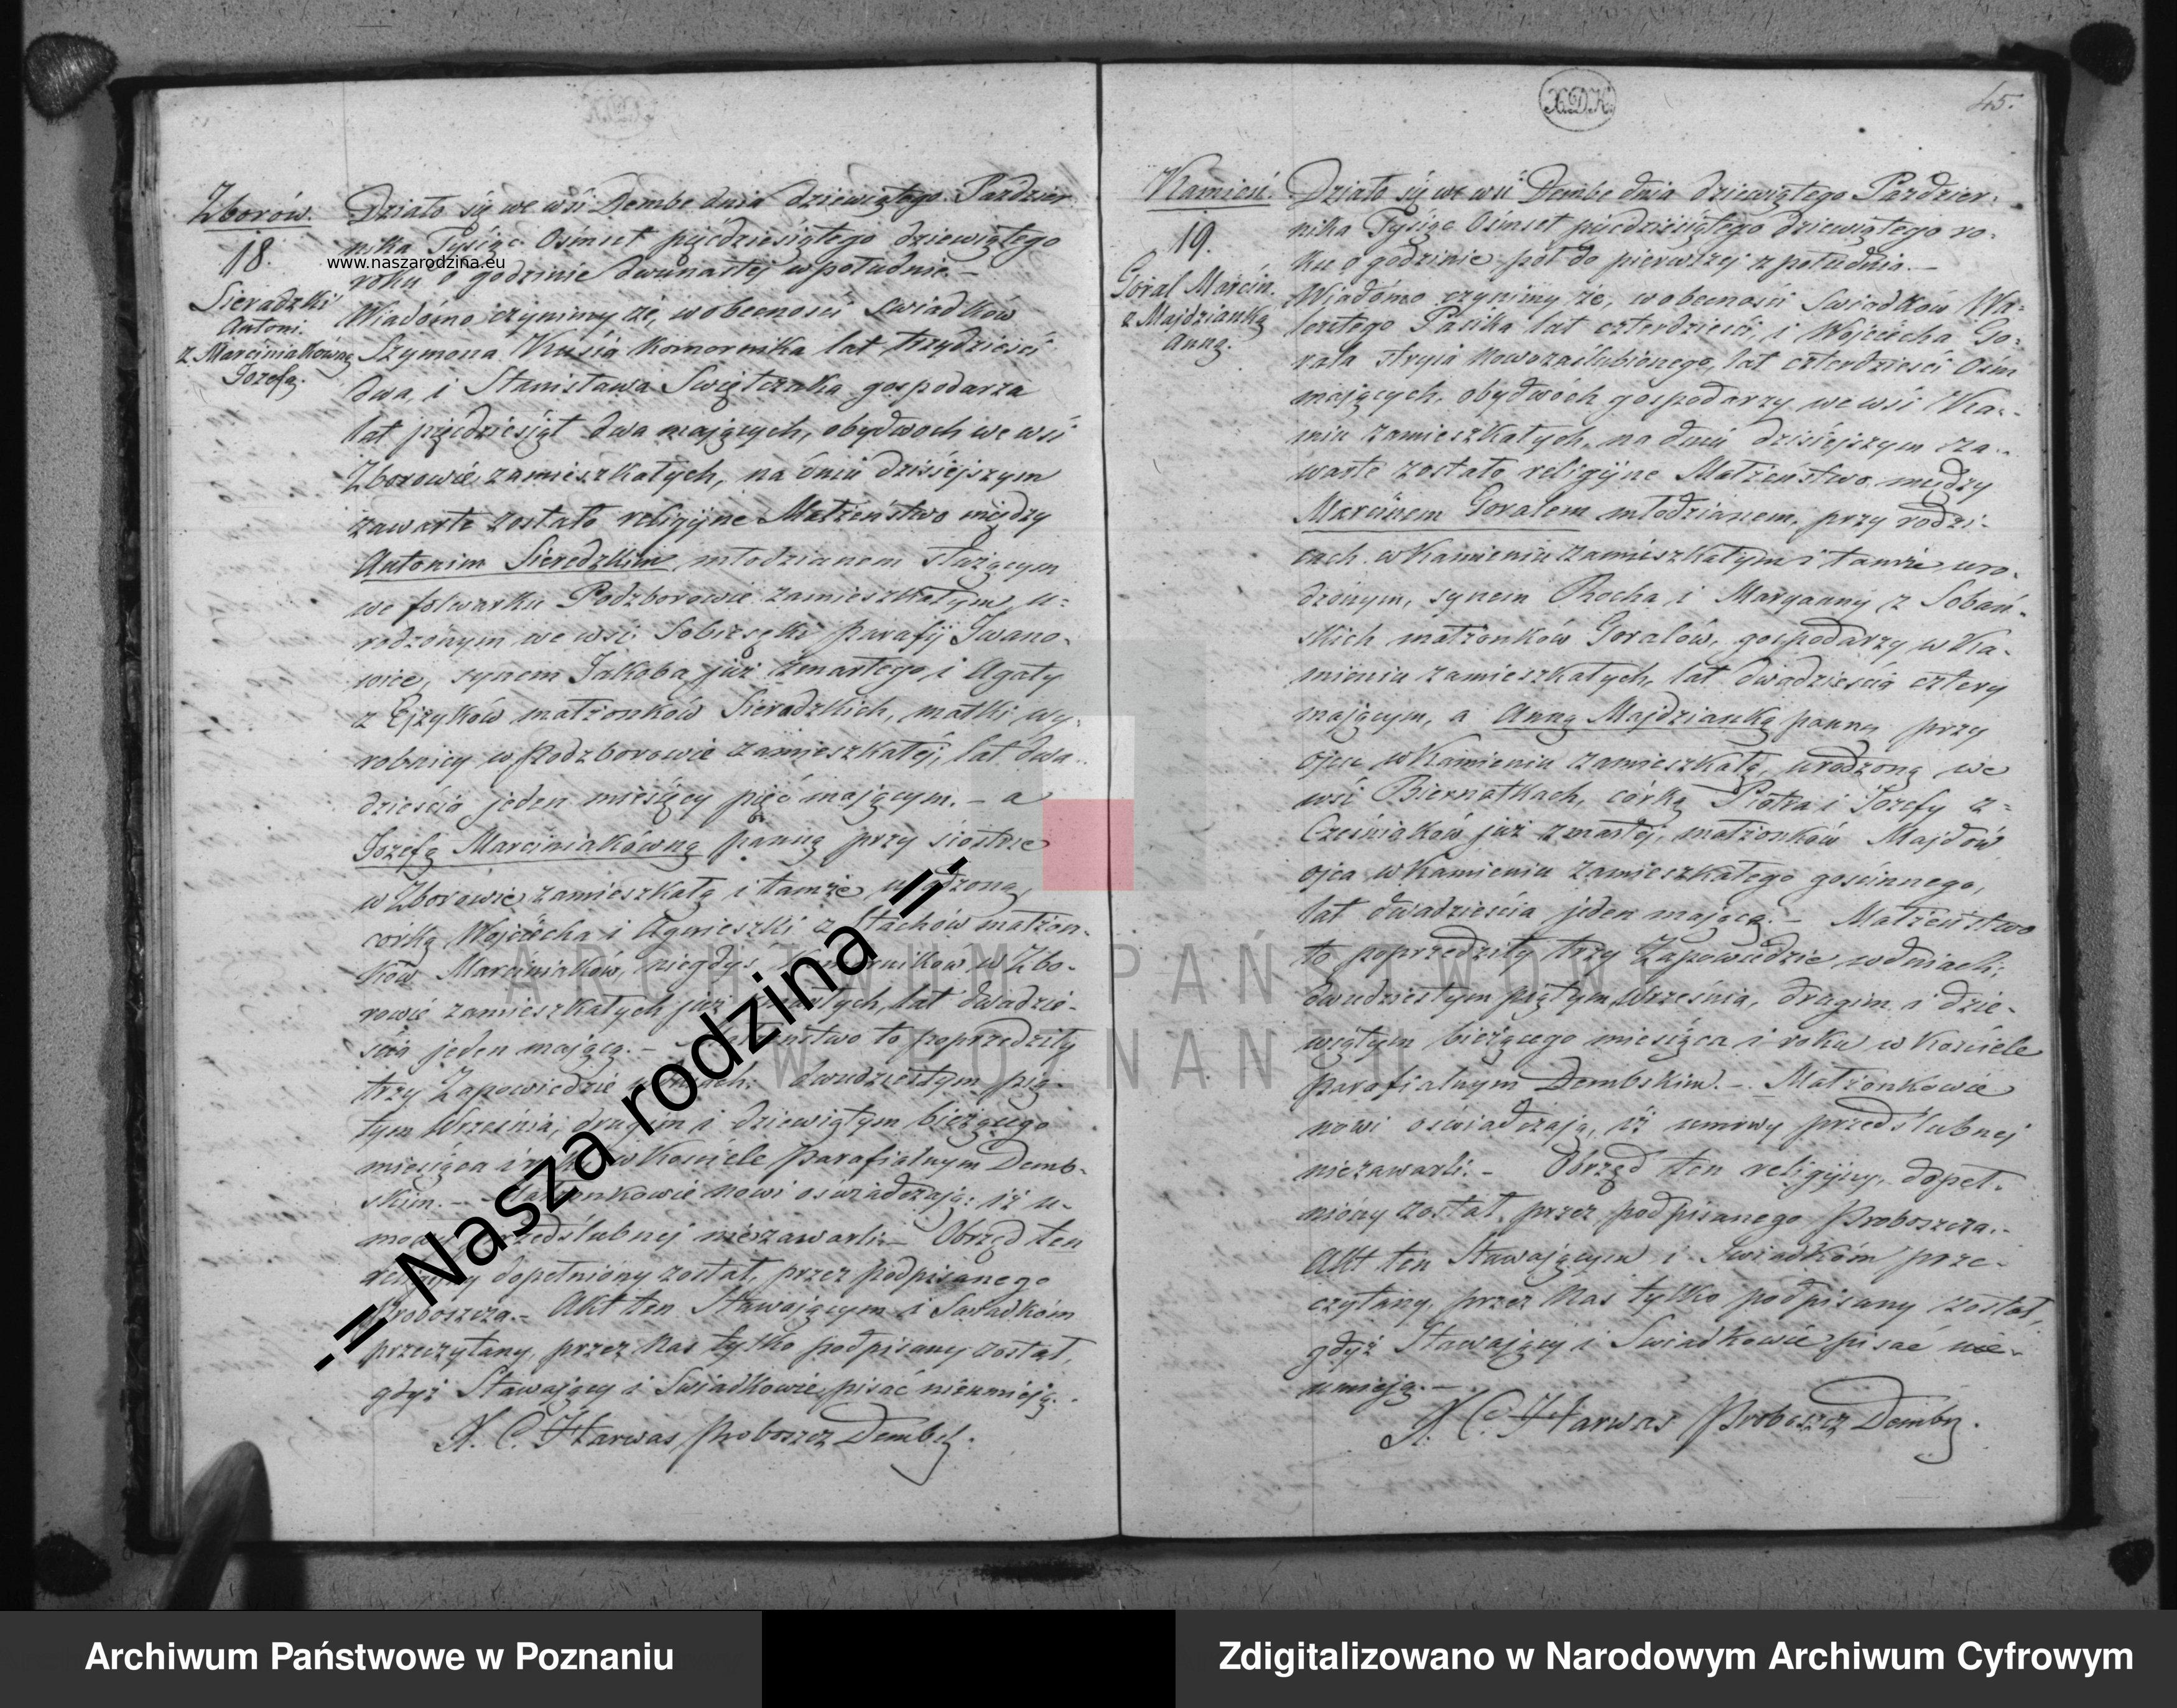 Zborów.
18.
Sieradzki
Antoni.
z Marciniakówną
Jozefą.
Działo się we wsi Dembe dnia dziewiątego Paździer
nika Tysiąc Ośmset pięćdziesiątego dziewiątego
www.naszarodzina.eu
roku o godzinie dwunastej w południe. –
Wiadomo czynimy że, w obecności Swiadków
Szymona Kusia komornika lat trzydzieści
dwa, i Stanisława Swiętczaka gospodarza
lat pięćdziesiąt dwa mających, obydwoch we wsi
Zborowie zamieszkałych, na dniu dzisiejszym
zawarte zostało religijne Małżeństwo między
Antonim Sieredzkim młodzianem służącym
we folwarku Podzborowie zamieszkałym u-
rodzonym we wsi Sobiesęki parafij Iwano-
wice, synem Jakoba już zmarłego i Agaty
z małżonków Sieradzkich, matki wy-
robnicy w Podzborowie zamieszkałej, lat dwa-
dzieścia jeden miesięcy pięć mającym. – a
Jozefą Marciniakówną panną przy siostrze
w Zborowie zamieszkałą i tamże urodzoną,
corką Wojciecha i Agnieszki z Stachów małżon-
ków Marciniaków, niegdyś komorników w Zbo-
rowie zamieszkałych już zmarłych, lat dwadzie-
ścia jeden mającą. – Małżeństwo to poprzedziły
trzy Zapowiedzie w dniach: dwudziestym pią-
tym Września, drugim i dziewiątym bieżącego
miesiąca i roku w Kościele Parafialnym Demb-
skim. – Małżonkowie nowi oświadczają: iż u-
mowy przedślubnej niezawarli. – Obrzęd ten
religijny dopełniony został, przez podpisanego
Proboszcza. – Akt ten Stawającym i Swiadkom
przeczytany, przez Nas tylko podpisany został,
gdyż Stawający i Swiadkowie pisać nieumieją.
X. C. Harwas Proboszcz
-=Nasza rodzina=-
X.D.K.
45.
Kamień.
19.
Goral Marcin.
z Majdzianką
Anną.
Działo się we wsi Dembe dnia dziewiątego Paździer-
nika Tysiąc Ośmset pięćdziesiątego dziewiątego ro-
ku o godzinie pół do pierwszej z południa. –
Wiadomo czynimy że, w obecności Swiadków Wa-
lentego Pasika lat czterdzieści, i Wojciecha Go-
rala stryja Nowozaślubionego, lat czterdzieści Ośm
mających, obydwóch gospodarzy we wsi Ka-
miu zamieszkałych, na dniu dzisiejszym za-
warte zostało religijne Małżeństwo między
Marcinem Goralem młodzianem, przy rodzi-
cach w Kamieniu zamieszkałym i tamże uro-
dzonym, synem Rocha i Maryanny z Sobań-
skich małżonków Goralów, gospodarzy w Ka-
mieniu zamieszkałych, lat dwadzieścia cztery
mającym, a Anną Majdzianką panną przy
ojcu w Kamieniu zamieszkałą, urodzoną we
wsi Biernatkach, córką Piotra i Jozefy z-
Cześniaków już zmarłej, małżonków Majdów
ojca w Kamieniu zamieszkałego gościnnego,
lat dwadzieścia jeden mającą. – Małżeństwo
to poprzedziły trzy Zapowiedzie w dniach:
dwudziestym piątym Września, drugim i dzie-
wiątym bieżącego miesiąca i roku w Kościele
parafialnym Dembskim. – Małżonkowie
nowi oświadczają, iż umowy przedślubnej
niezawarli. – Obrzęd ten religijny, dopeł-
niony został przez podpisanego Proboszcza. –
Akt ten Stawającym i Swiadkom prze-
czytany, przez Nas tylko podpisany został,
gdyż Stawający i Swiadkowie pisać nie-
umieją. –
X. C. Harwas Proboszcz
ARCHIWUM PAŃSTWOWE
W POZNANIU
Archiwum Państwowe w Poznaniu
Zdigitalizowano w Narodowym Archiwum Cyfrowym